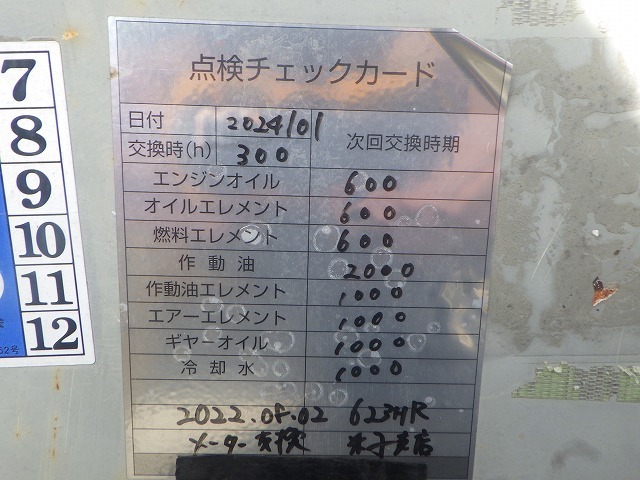 7
8
9
10
11
12
点検チェックカード
日付 2024/01
交換時(h) 300 次回交換時期
エンジンオイル 600
オイルエレメント 600
燃料エレメント 600
作動油 2000
作動油エレメント 1000
エアーエレメント 1000
ギヤーオイル 1000
冷却水 1000
2022.08.02 623HR
メーター交換 米子支店